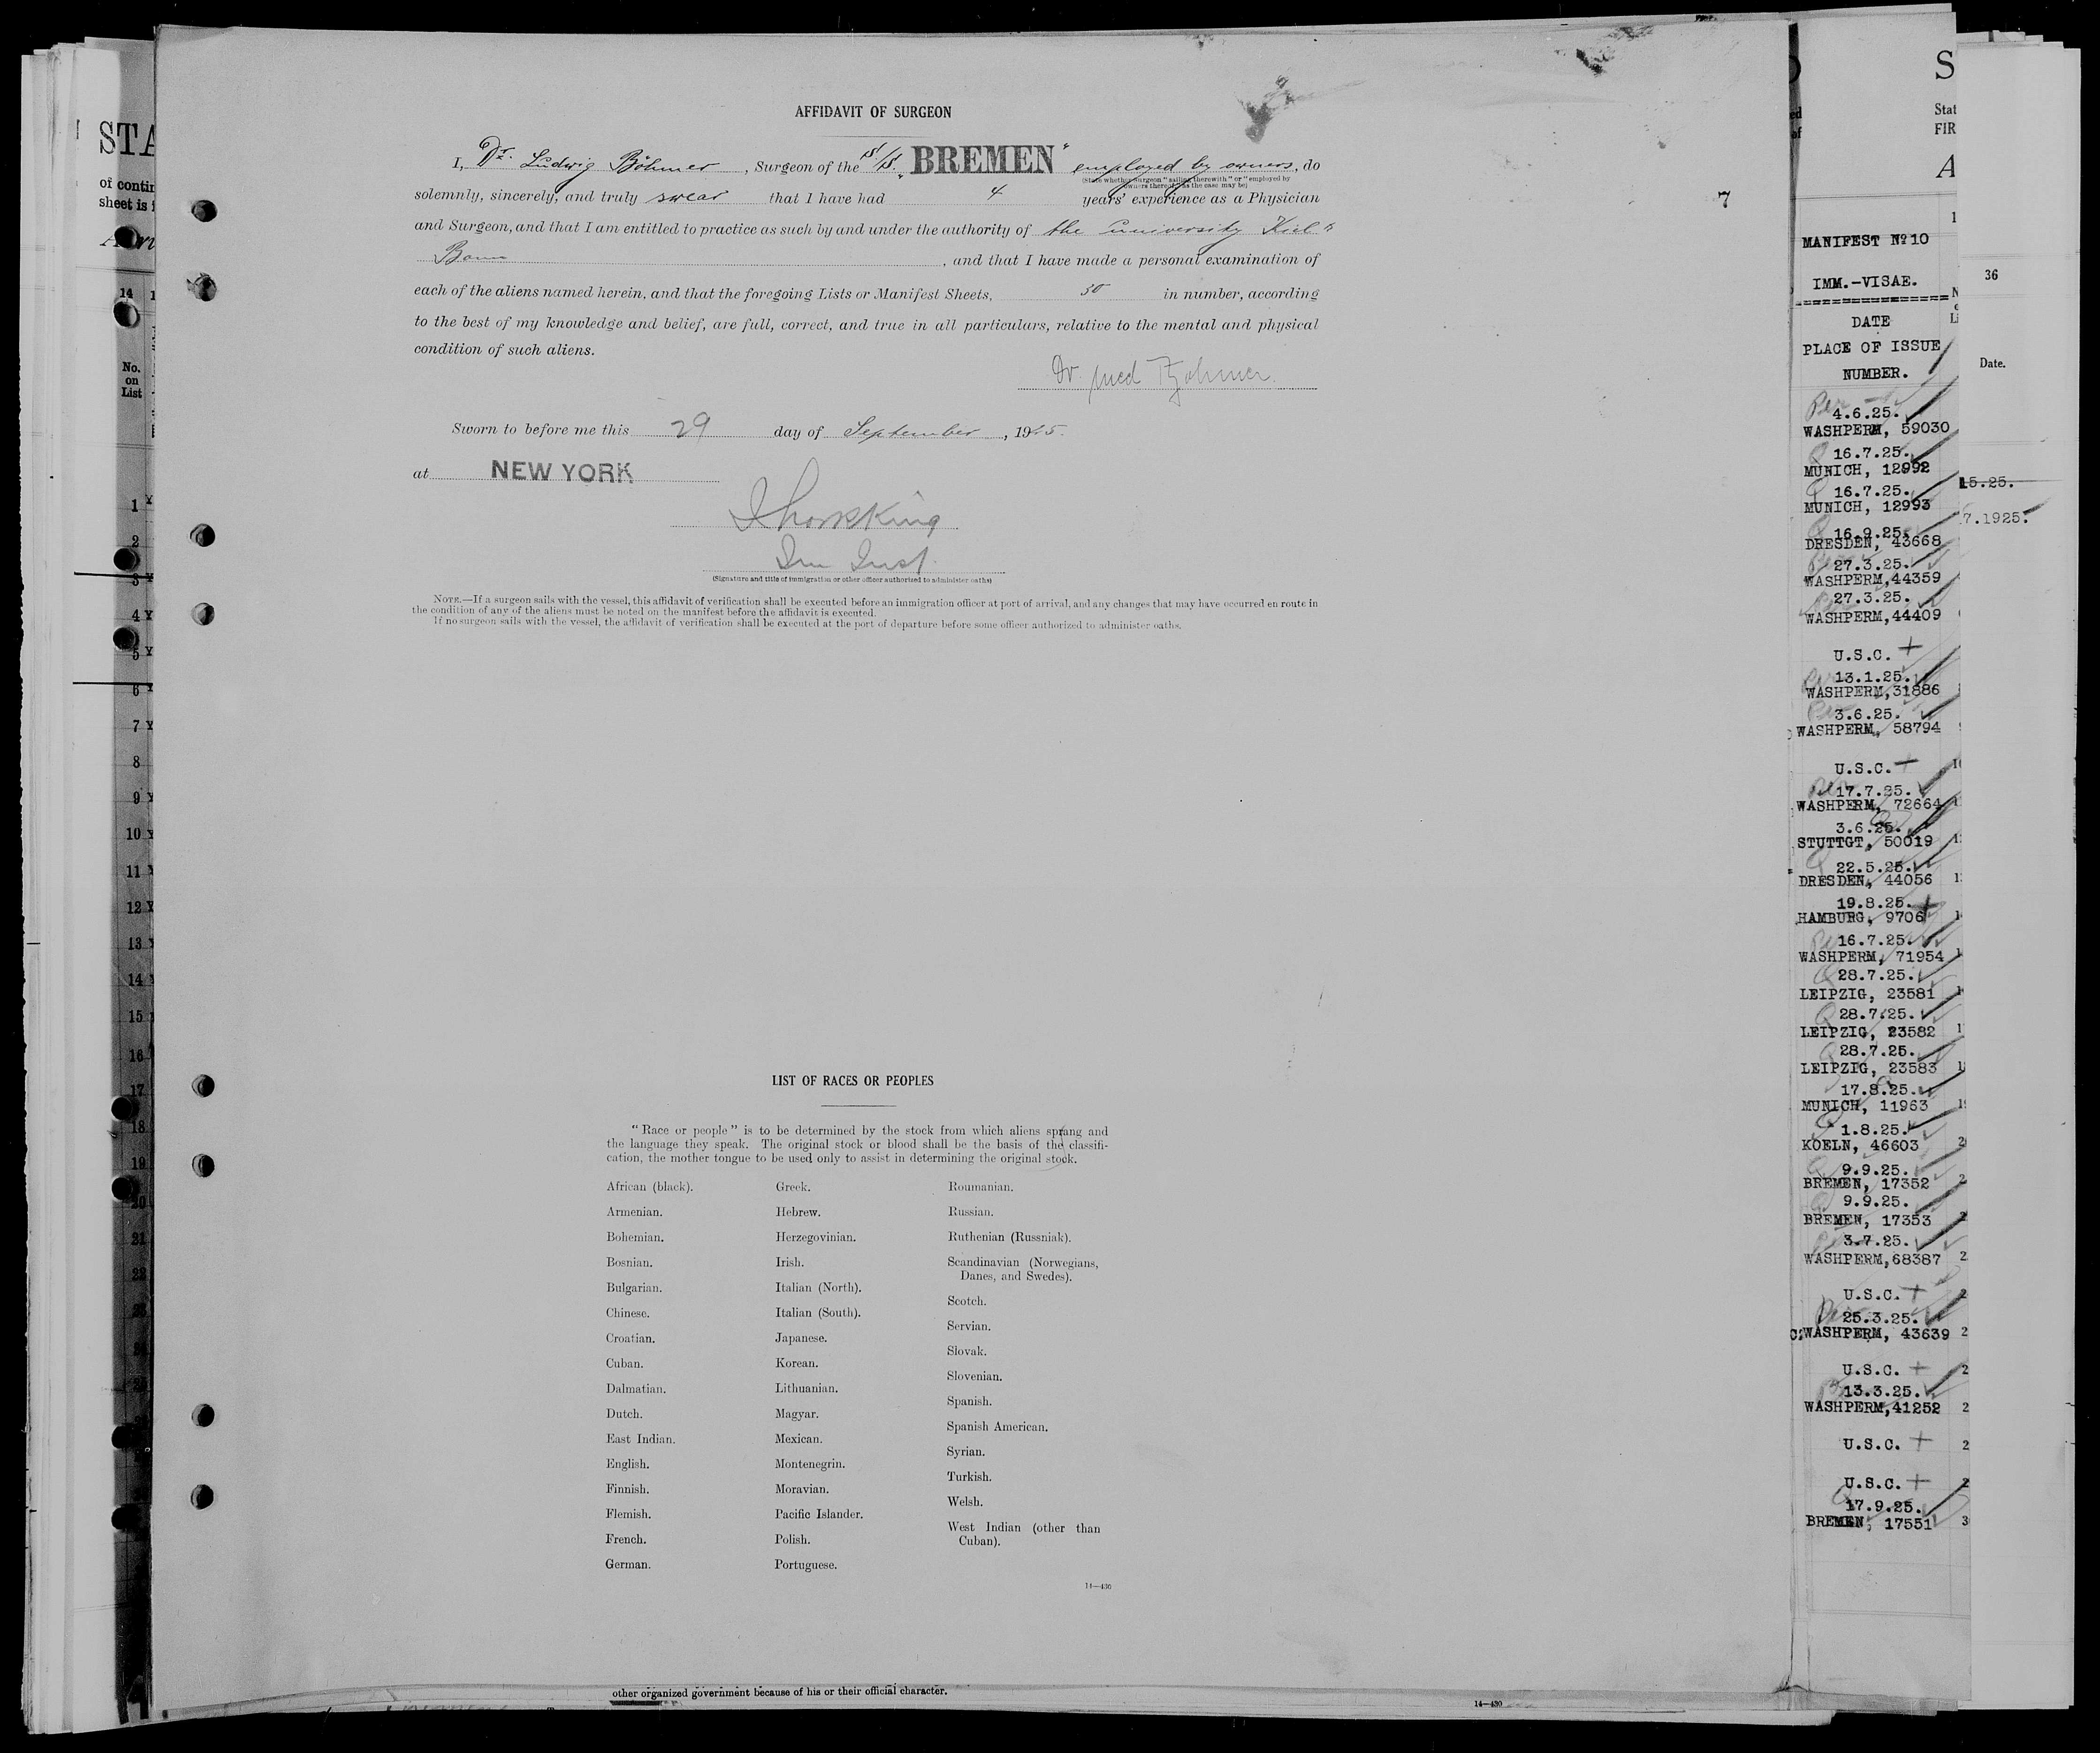 STA
of contin
sheet is
14
No.
on
List
1
2
3
4
5
6
7
8
9
10
11
12
13
14
15
16
17
18
19
20
21
AFFIDAVIT OF SURGEON
I, Dr. Ludwig Böhmer, Surgeon of the S/S. „BREMEN" employed by owners, do
(State whether surgeon "sailing therewith" or "employed by
owners thereof," as the case may be)
solemnly, sincerely, and truly swear that I have had 4 years' experience as a Physician
and Surgeon, and that I am entitled to practice as such by and under the authority of the University Kiel
Bonn, and that I have made a personal examination of
each of the aliens named herein, and that the foregoing Lists or Manifest Sheets, 30 in number, according
to the best of my knowledge and belief, are full, correct, and true in all particulars, relative to the mental and physical
condition of such aliens.
Dr. med Böhmer.
Sworn to before me this 29 day of September, 1925.
at NEW YORK
Imm Insp.
(Signature and title of immigration or other officer authorized to administer oaths)
NOTE.—If a surgeon sails with the vessel, this affidavit of verification shall be executed before an immigration officer at port of arrival, and any changes that may have occurred en route in
the condition of any of the aliens must be noted on the manifest before the affidavit is executed.
If no surgeon sails with the vessel, the affidavit of verification shall be executed at the port of departure before some officer authorized to administer oaths.
7
LIST OF RACES OR PEOPLES
"Race or people" is to be determined by the stock from which aliens sprang and
the language they speak. The original stock or blood shall be the basis of the classifi-
cation, the mother tongue to be used only to assist in determining the original stock.
African (black).
Armenian.
Bohemian.
Bosnian.
Bulgarian.
Chinese.
Croatian.
Cuban.
Dalmatian.
Dutch.
East Indian.
English.
Finnish.
Flemish.
French.
German.
Greek.
Hebrew.
Herzegovinian.
Irish.
Italian (North).
Italian (South).
Japanese.
Korean.
Lithuanian.
Magyar.
Mexican.
Montenegrin.
Moravian.
Pacific Islander.
Polish.
Portuguese.
Roumanian.
Russian.
Ruthenian (Russniak).
Scandinavian (Norwegians,
Danes, and Swedes).
Scotch.
Servian.
Slovak.
Slovenian.
Spanish.
Spanish American.
Syrian.
Turkish.
Welsh.
West Indian (other than
Cuban).
14—430
other organized government because of his or their official character.
14—430
MANIFEST Nº 10
IMM.-VISAE.
==================
DATE
PLACE OF ISSUE
NUMBER.
4.6.25.
WASHPERM, 59030
16.7.25.
MUNICH, 12992
16.7.25.
MUNICH, 12993
16.9.25.
DRESDEN, 43668
27.3.25.
WASHPERM,44359
27.3.25.
WASHPERM,44409
U.S.C.
13.1.25.
WASHPERM,31886
3.6.25.
WASHPERM, 58794
U.S.C.
17.7.25.
WASHPERM, 72664
3.6.25.
STUTTGT, 50019
22.5.25.
DRESDEN, 44056
19.8.25.
HAMBURG, 9706
16.7.25.
WASHPERM, 71954
28.7.25.
LEIPZIG, 23581
28.7.25.
LEIPZIG, 23582
28.7.25.
LEIPZIG, 23583
17.8.25.
MUNICH, 11963
1.8.25.
KOELN, 46603
9.9.25.
BREMEN, 17352
9.9.25.
BREMEN, 17353
3.7.25.
WASHPERM,68387
U.S.C.
25.3.25.
WASHPERM, 43639
U.S.C.
13.3.25.
WASHPERM,41252
U.S.C.
U.S.C.
17.9.25.
BREMEN, 17551
S
Stat
FIR
A
36
Date.
5.25.
7.1925.